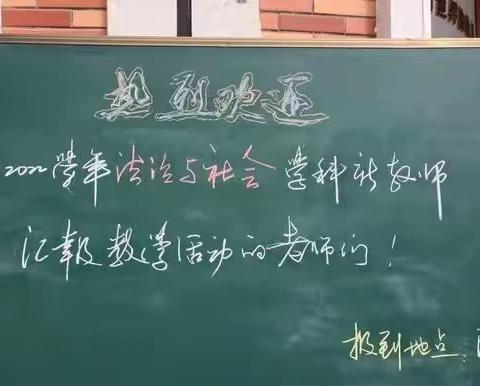 热烈欢迎
2022学年法治与社会学科新教师
汇报教学活动的老师们！
报到地点：